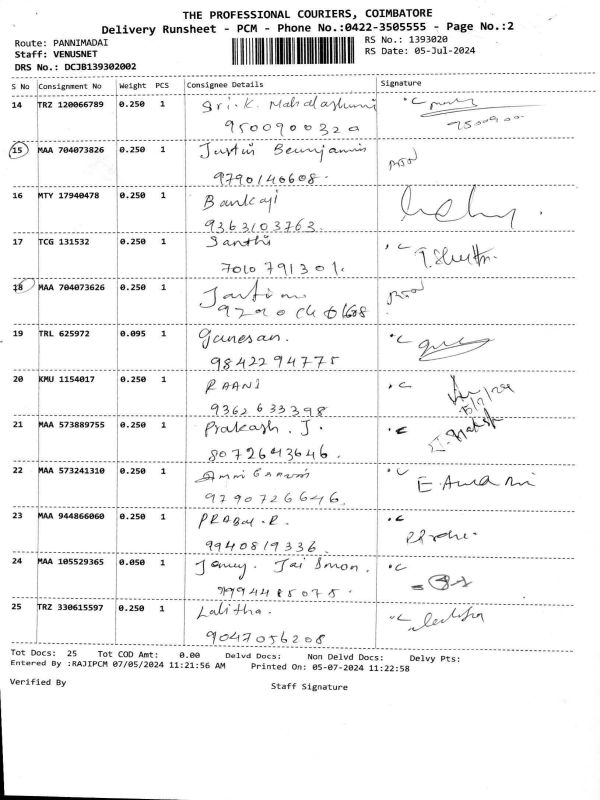 THE PROFESSIONAL COURIERS, COIMBATORE
Delivery Runsheet - PCM - Phone No.:0422-3505555 - Page No.:2
Route: PANNIMADAI RS No.: 1393020
Staff: VENUSNET RS Date: 05-Jul-2024
DRS No.: DCJB139302002
S No Consignment No Weight PCS Consignee Details Signature
14 TRZ 120066789 0.250 1 Sri. K. Mahalashumi
9500900320 9500900
15 MAA 704073826 0.250 1 Justin Beunjamin
9790140608.
16 MTY 17940478 0.250 1 Bankaji
9363103763.
17 TCG 131532 0.250 1 Santhi
7010 791301.
18 MAA 704073626 0.250 1
19 TRL 625972 0.095 1 Ganesan.
9842294775
20 KMU 1154017 0.250 1 RAANI
9362633398 5/7/24
21 MAA 573889755 0.250 1 Prakash. J.
8072643646.
22 MAA 573241310 0.250 1
9790726646.
23 MAA 944866060 0.250 1
9940819336.
24 MAA 105529365 0.050 1
9994485075.
25 TRZ 330615597 0.250 1 Lalitha.
9047056208
Tot Docs: 25 Tot COD Amt: 0.00 Delvd Docs: Non Delvd Docs: Delvy Pts:
Entered By :RAJIPCM 07/05/2024 11:21:56 AM Printed On: 05-07-2024 11:22:58
Verified By Staff Signature